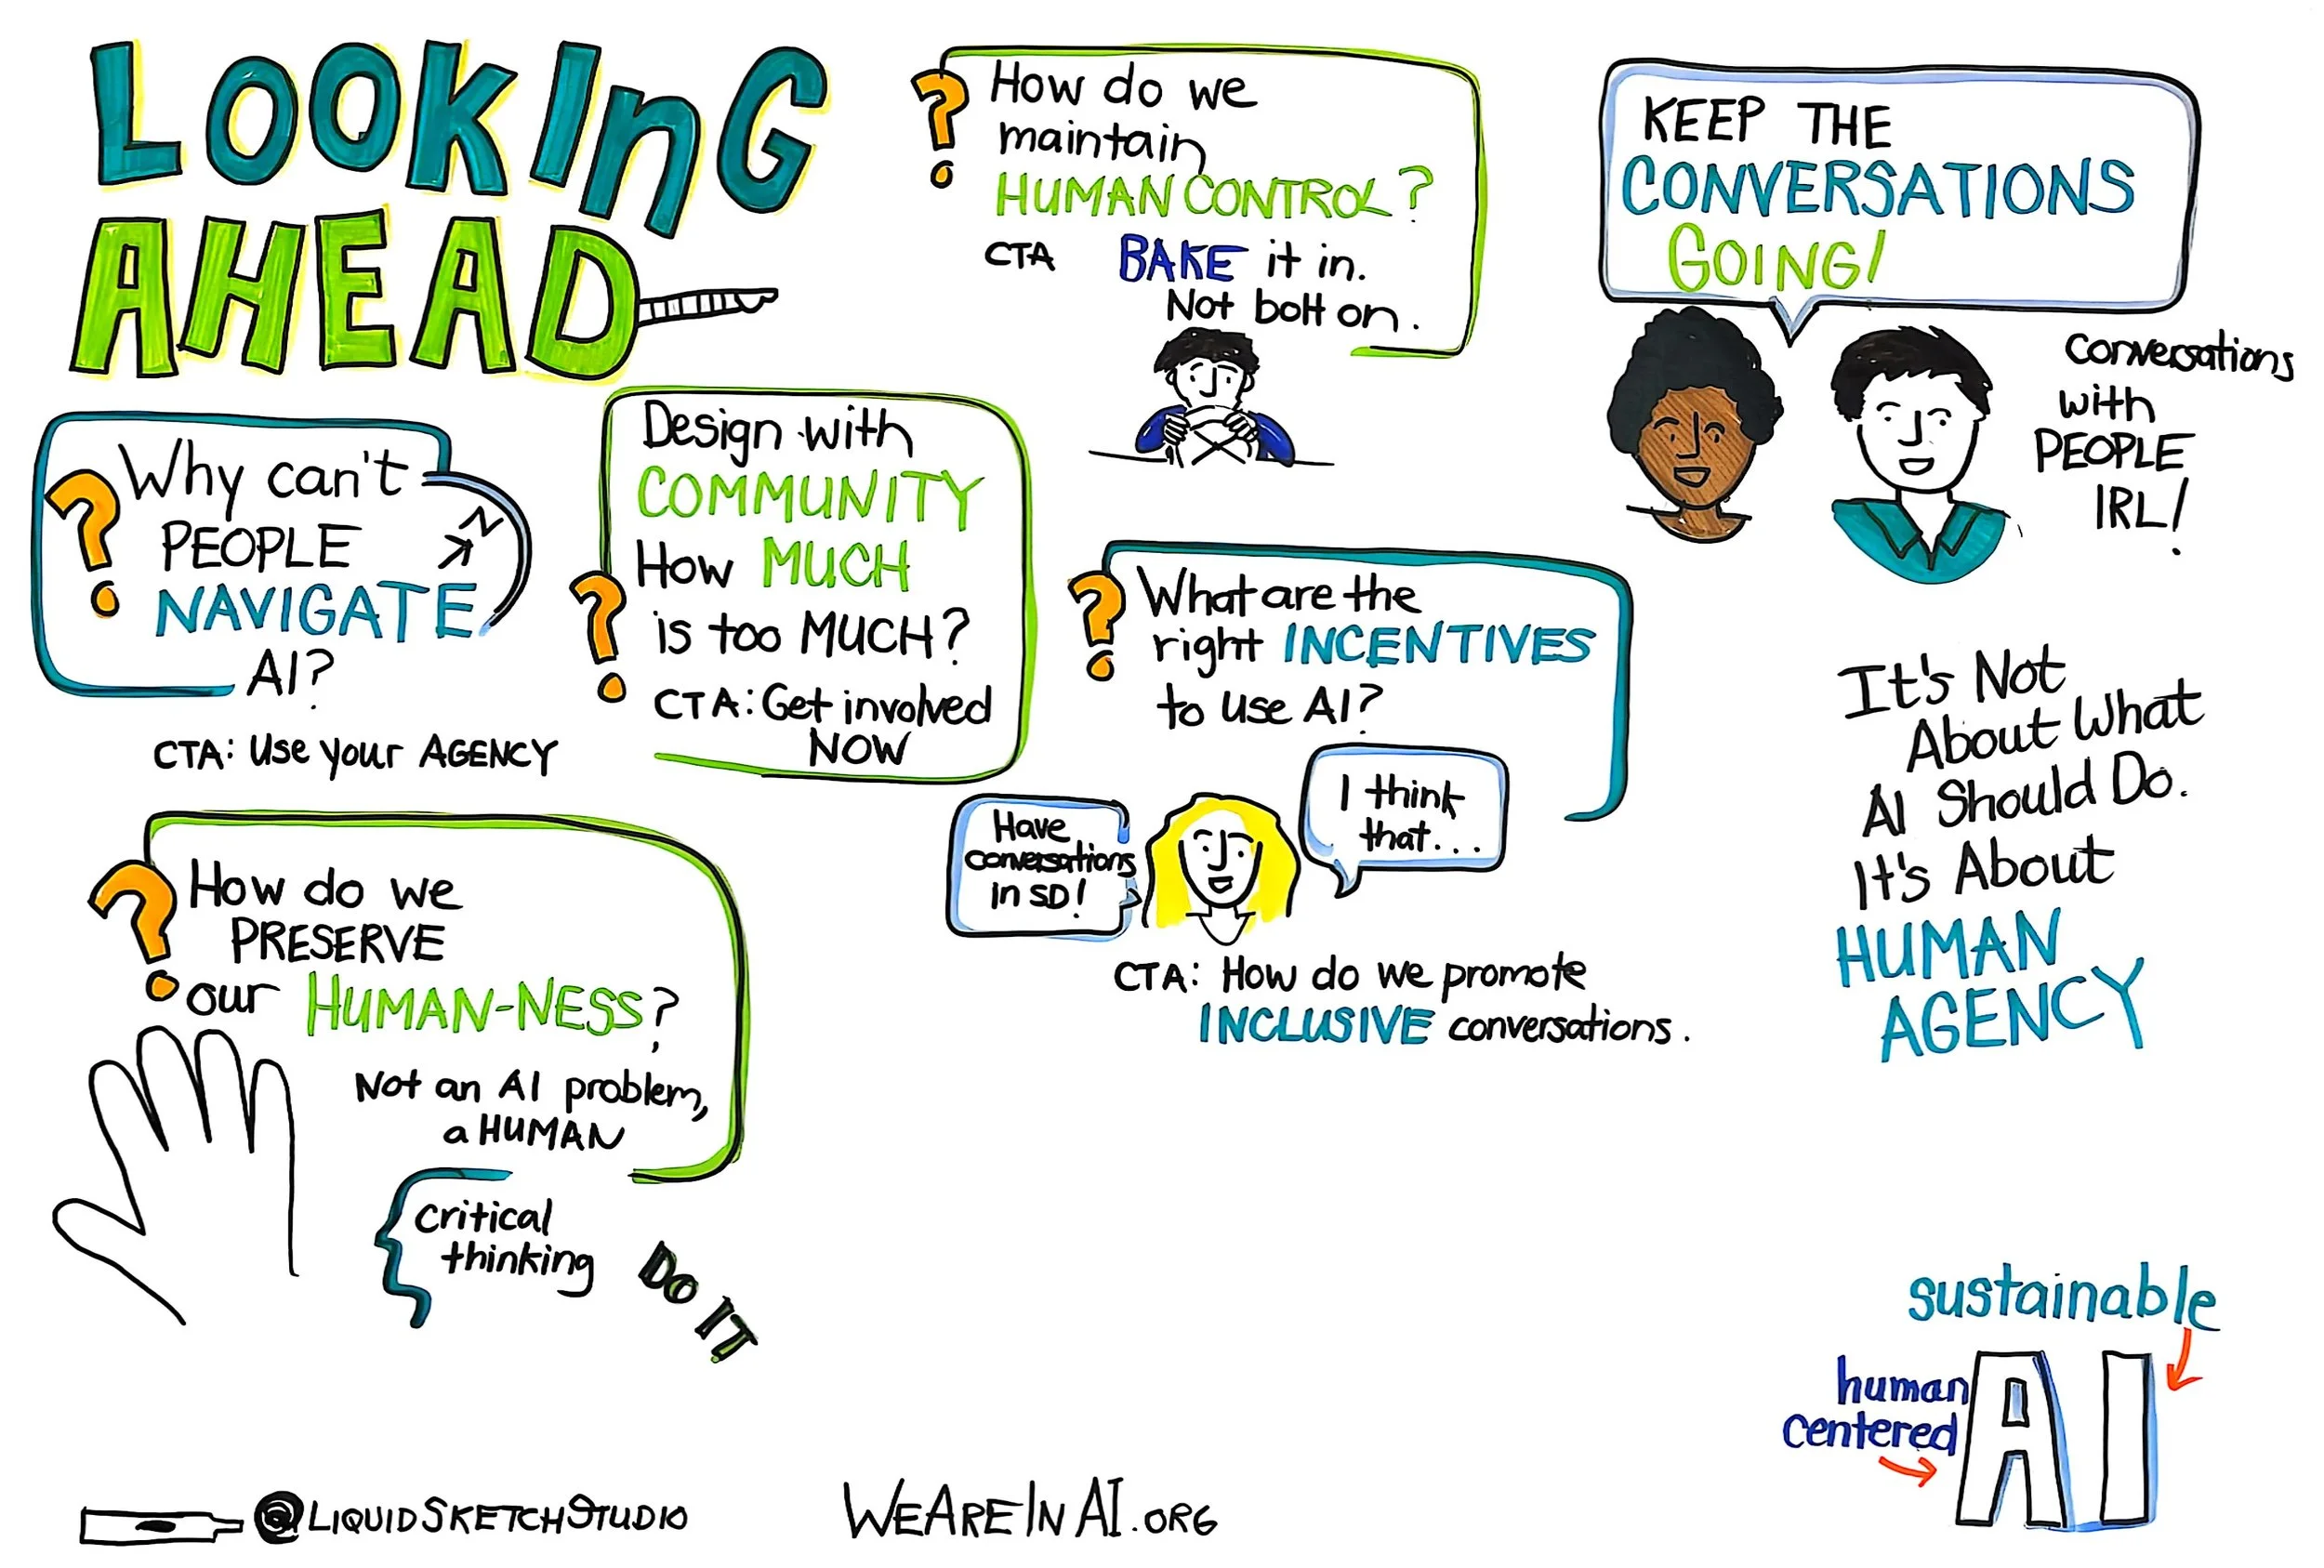 LOOKInG
AHEAD
Why can't
PEOPLE
NAVIGATE
AI?
N
CTA: Use your AGENCY
Design with
COMMUNITY
How MUCH
is too MUCH?
CTA: Get involved
NOW
How do we
maintain
HUMAN CONTROL?
CTA BAKE it in.
Not bolt on.
KEEP THE
CONVERSATIONS
GOING!
Conversations
with
PEOPLE
IRL!
What are the
right INCENTIVES
to use AI?
Have
conversations
in SD!
I think
that...
CTA: How do we promote
INCLUSIVE conversations.
It's Not
About What
AI Should Do.
It's About
HUMAN
AGENCY
How do we
PRESERVE
our HUMAN-NESS?
Not an AI problem,
a HUMAN
Critical
thinking
DO IT
sustainable
human
centered
AI
@LIQUIDSKETCHSTUDIO
WEAREINAI.ORG